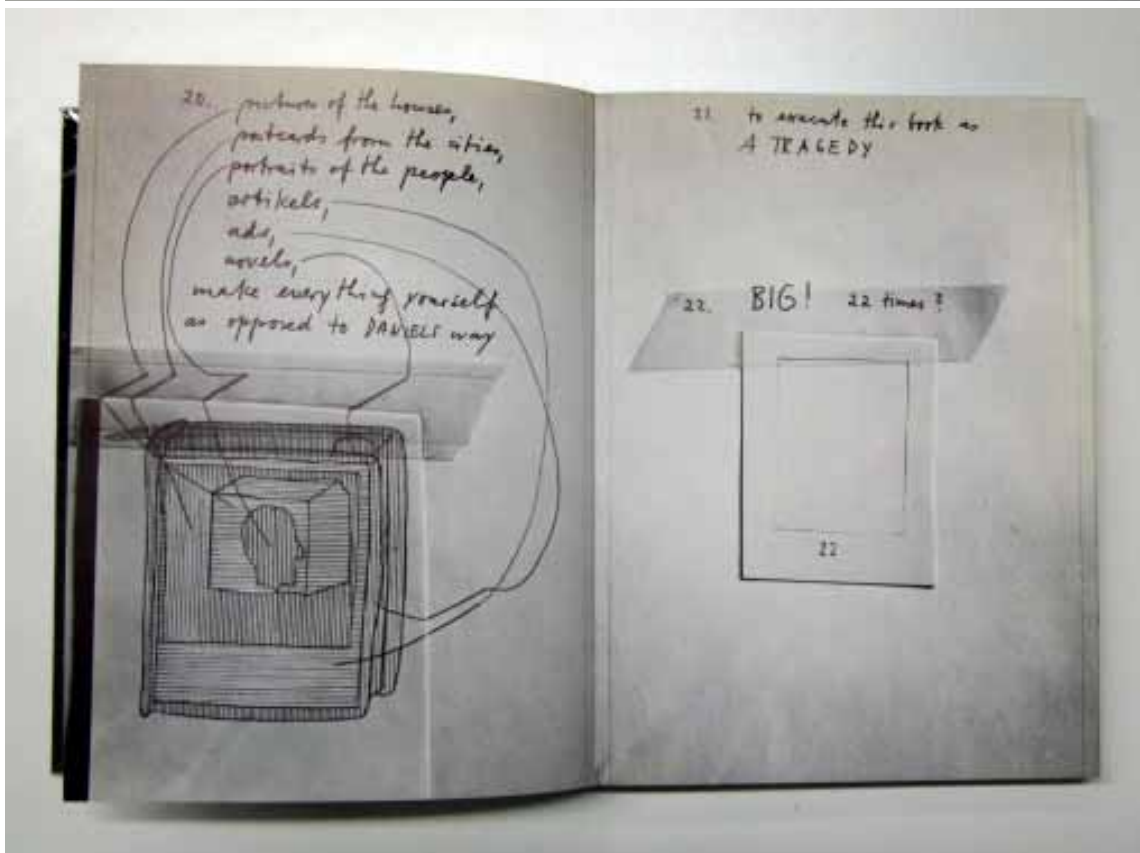 20. pictures of the houses,
postcards from the cities,
portraits of the people,
artikels,
ads,
novels,
make everything yourself
as opposed to DANIELS way
21. to execute this book as
A TRAGEDY
22. BIG! 22 times?
22